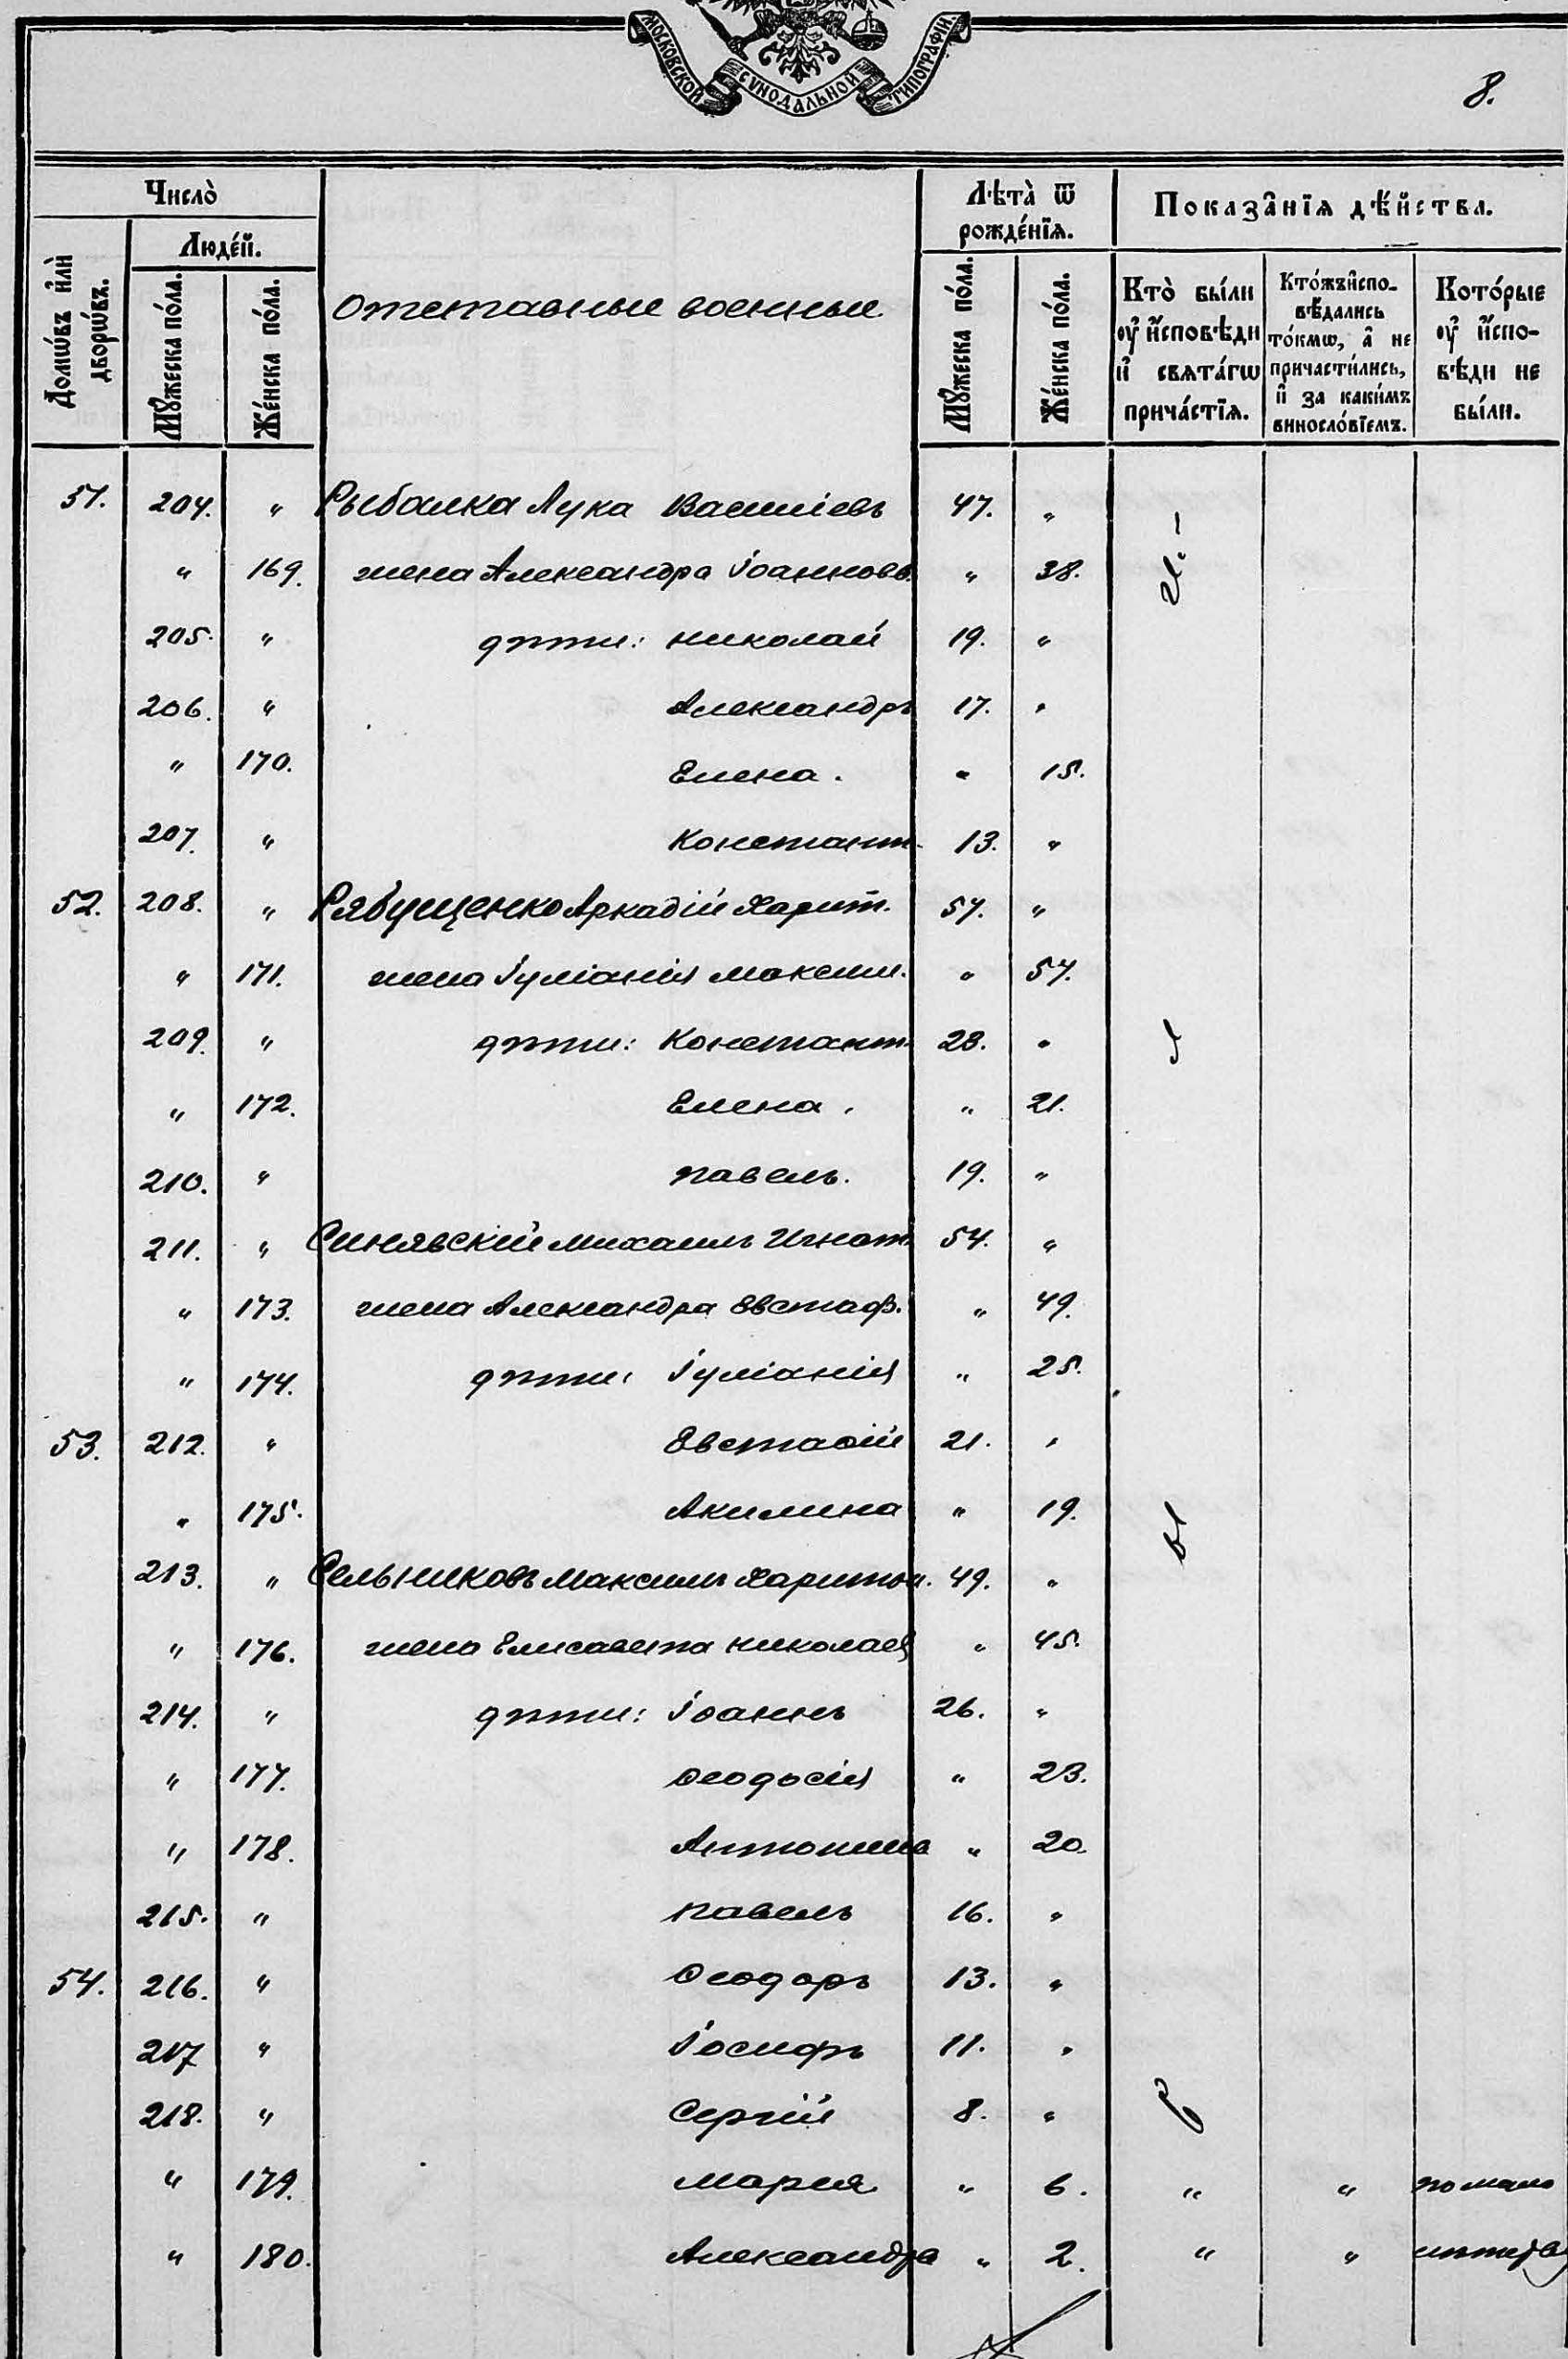 МОСКОВСКОЙ СѴНОДАЛЬНОЙ ТИПОГРАФІИ.
8.
Число̀
Людéй.
Домѡ́въ и҆лѝ дворѡ́въ.
Мꙋ́жеска по́ла.
Же́нска по́ла.
Отставные военные
Лѣ́та ѿ рожде́нїѧ.
Мꙋ́жеска по́ла.
Же́нска по́ла.
Показа̑нїѧ дѣ́йства.
Кто̀ бы́ли ᲂу҆ и҆сповѣди и҆ свѧта́гѡ прича́стїѧ.
Кто́жъ и҆спо- вѣдались то́кмѡ, а҆ не причасти́лись, и҆ за каки́мъ виносло́вїемъ.
Кото́рые ᲂу҆ и҆спо- вѣди не бы́ли.
51. 204. " Рыбалка Лука Василіевъ 47. "
" 169. жена Александра Іоаннова. " 38.
205. " дѣти: Николай 19. "
206. " Александръ 17. "
" 170. Елена. " 15.
207. " Констант. 13. "
52. 208. " Рябущенко Аркадій Харит. 57. "
" 171. жена Іуліанія Максим. " 57.
209. " дѣти: Констант. 28. "
" 172. Елена. " 21.
210. " Павелъ. 19. "
211. " Синявскій Михаилъ Игнат. 54. "
" 173. жена Александра Евстаф. " 49.
" 174. дѣти: Іуліанія " 25.
53. 212. " Евстафій 21. "
" 175. Акилина " 19.
213. " Сельниковъ Максимъ Харитон. 49. "
" 176. жена Елисавета Николаев " 45.
214. " дѣти: Іоаннъ 26. "
" 177. Ѳеодосія " 23.
" 178. Антонина " 20.
215. " Павелъ 16. "
54. 216. " Ѳеодоръ 13. "
217 " Іосифъ 11. "
218. " Сергій 8. "
" 179. Марія " 6. " " по мало
" 180. Александра " 2. " " лѣтств